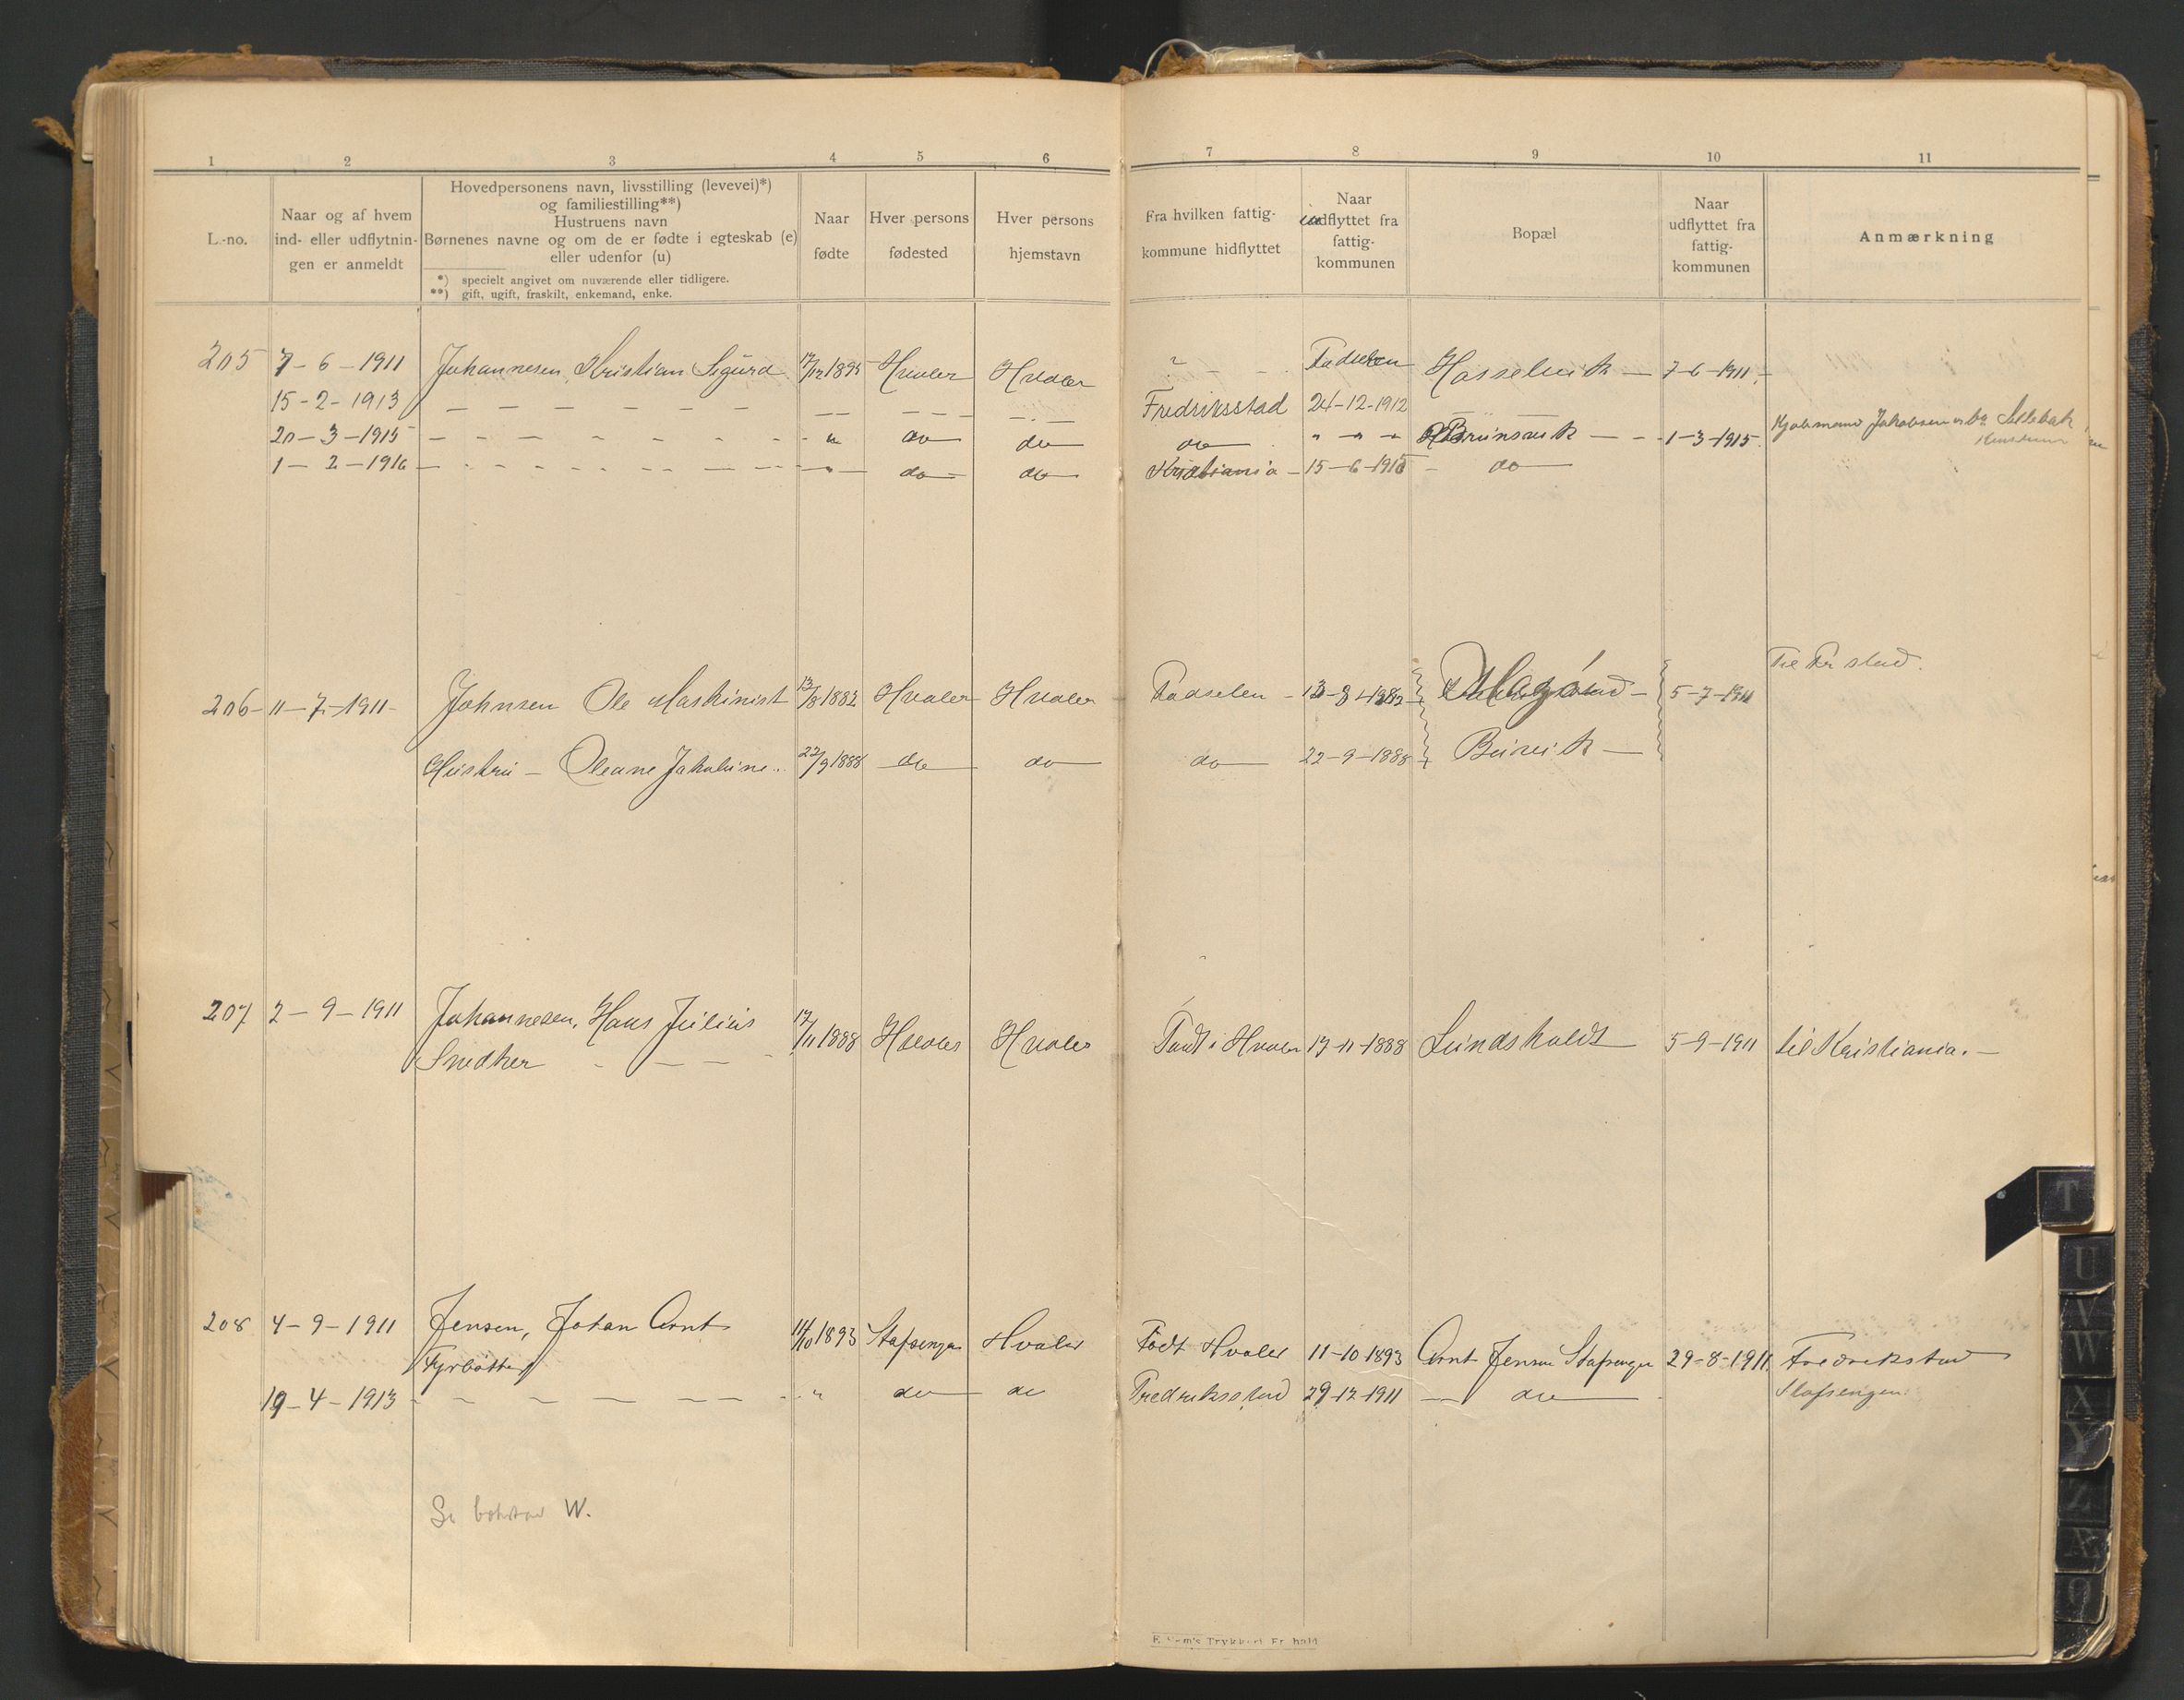 1 2 3 4 5 6 7 8 9 10 11
L.-no.
Naar og af hvem
ind- eller udflytnin-
gen er anmeldt
Hovedpersonens navn, livsstilling (levevei)*)
og familiestilling**)
Hustruens navn
Børnenes navne og om de er fødte i egteskab (e)
eller udenfor (u)
*) specielt angivet om nuværende eller tidligere.
**) gift, ugift, fraskilt, enkemand, enke.
Naar
fødte
Hver persons
fødested
Hver persons
hjemstavn
Fra hvilken fattig-
kommune hidflyttet
Naar
indflyttet fra
fattig-
kommunen
Bopæl
Naar
udflyttet fra
fattig-
kommunen
Anmærkning
205 7-6-1911 Johannesen, Kristian Sigurd 17/12 1895 Hvaler Hvaler ? Fødselen Hasselvik 7-6-1911
15-2-1913 Fredriksstad 24-12-1912
20-3-1915 " do do do " " " Brunsvik 1-3-1915 Jakobsen
1-2-1916 " do do Kristiania 15-6-1915 do
206 11-7-1911 Johnsen Ole Maskinist 13/8 1882 Hvaler Hvaler Fødselen 13-8-1882 5-7-1911 Til Fr stad.
Hustru - Oleane Jakobine 22/9 1888 do do do 22-9-1888
207 2-9-1911 Johannesen, Hans Julius 17/11 1888 Hvaler Hvaler Født i Hvaler 17-11-1888 Lundsholdt 5-9-1911 til Kristiania.
Snedker
208 4-9-1911 Jensen, Johan Arnt 11/10 1893 Stafsengen Hvaler Født Hvaler 11-10-1893 Arnt Jensen Stafsengen 29-8-1911 Fredrikstad
Fyrbøtter
19-4-1913 " do do Fredriksstad 29-12-1911 do Stafsengen
Se W.